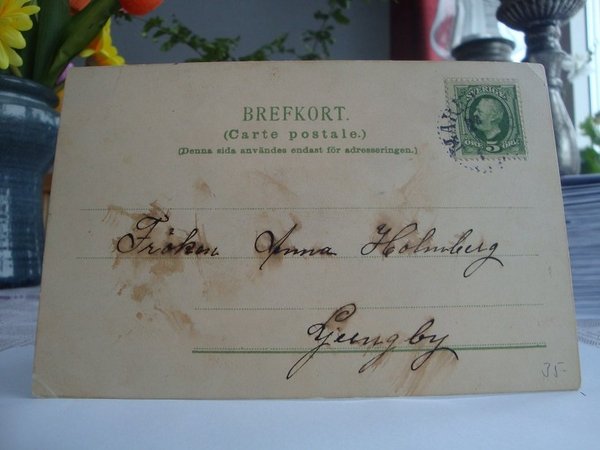 BREFKORT.
(Carte postale.)
(Denna sida användes endast för adresseringen.)
SVERIGE
5
ÖRE
ÖRE
Fröken Anna Holmberg
Ljungby
35-